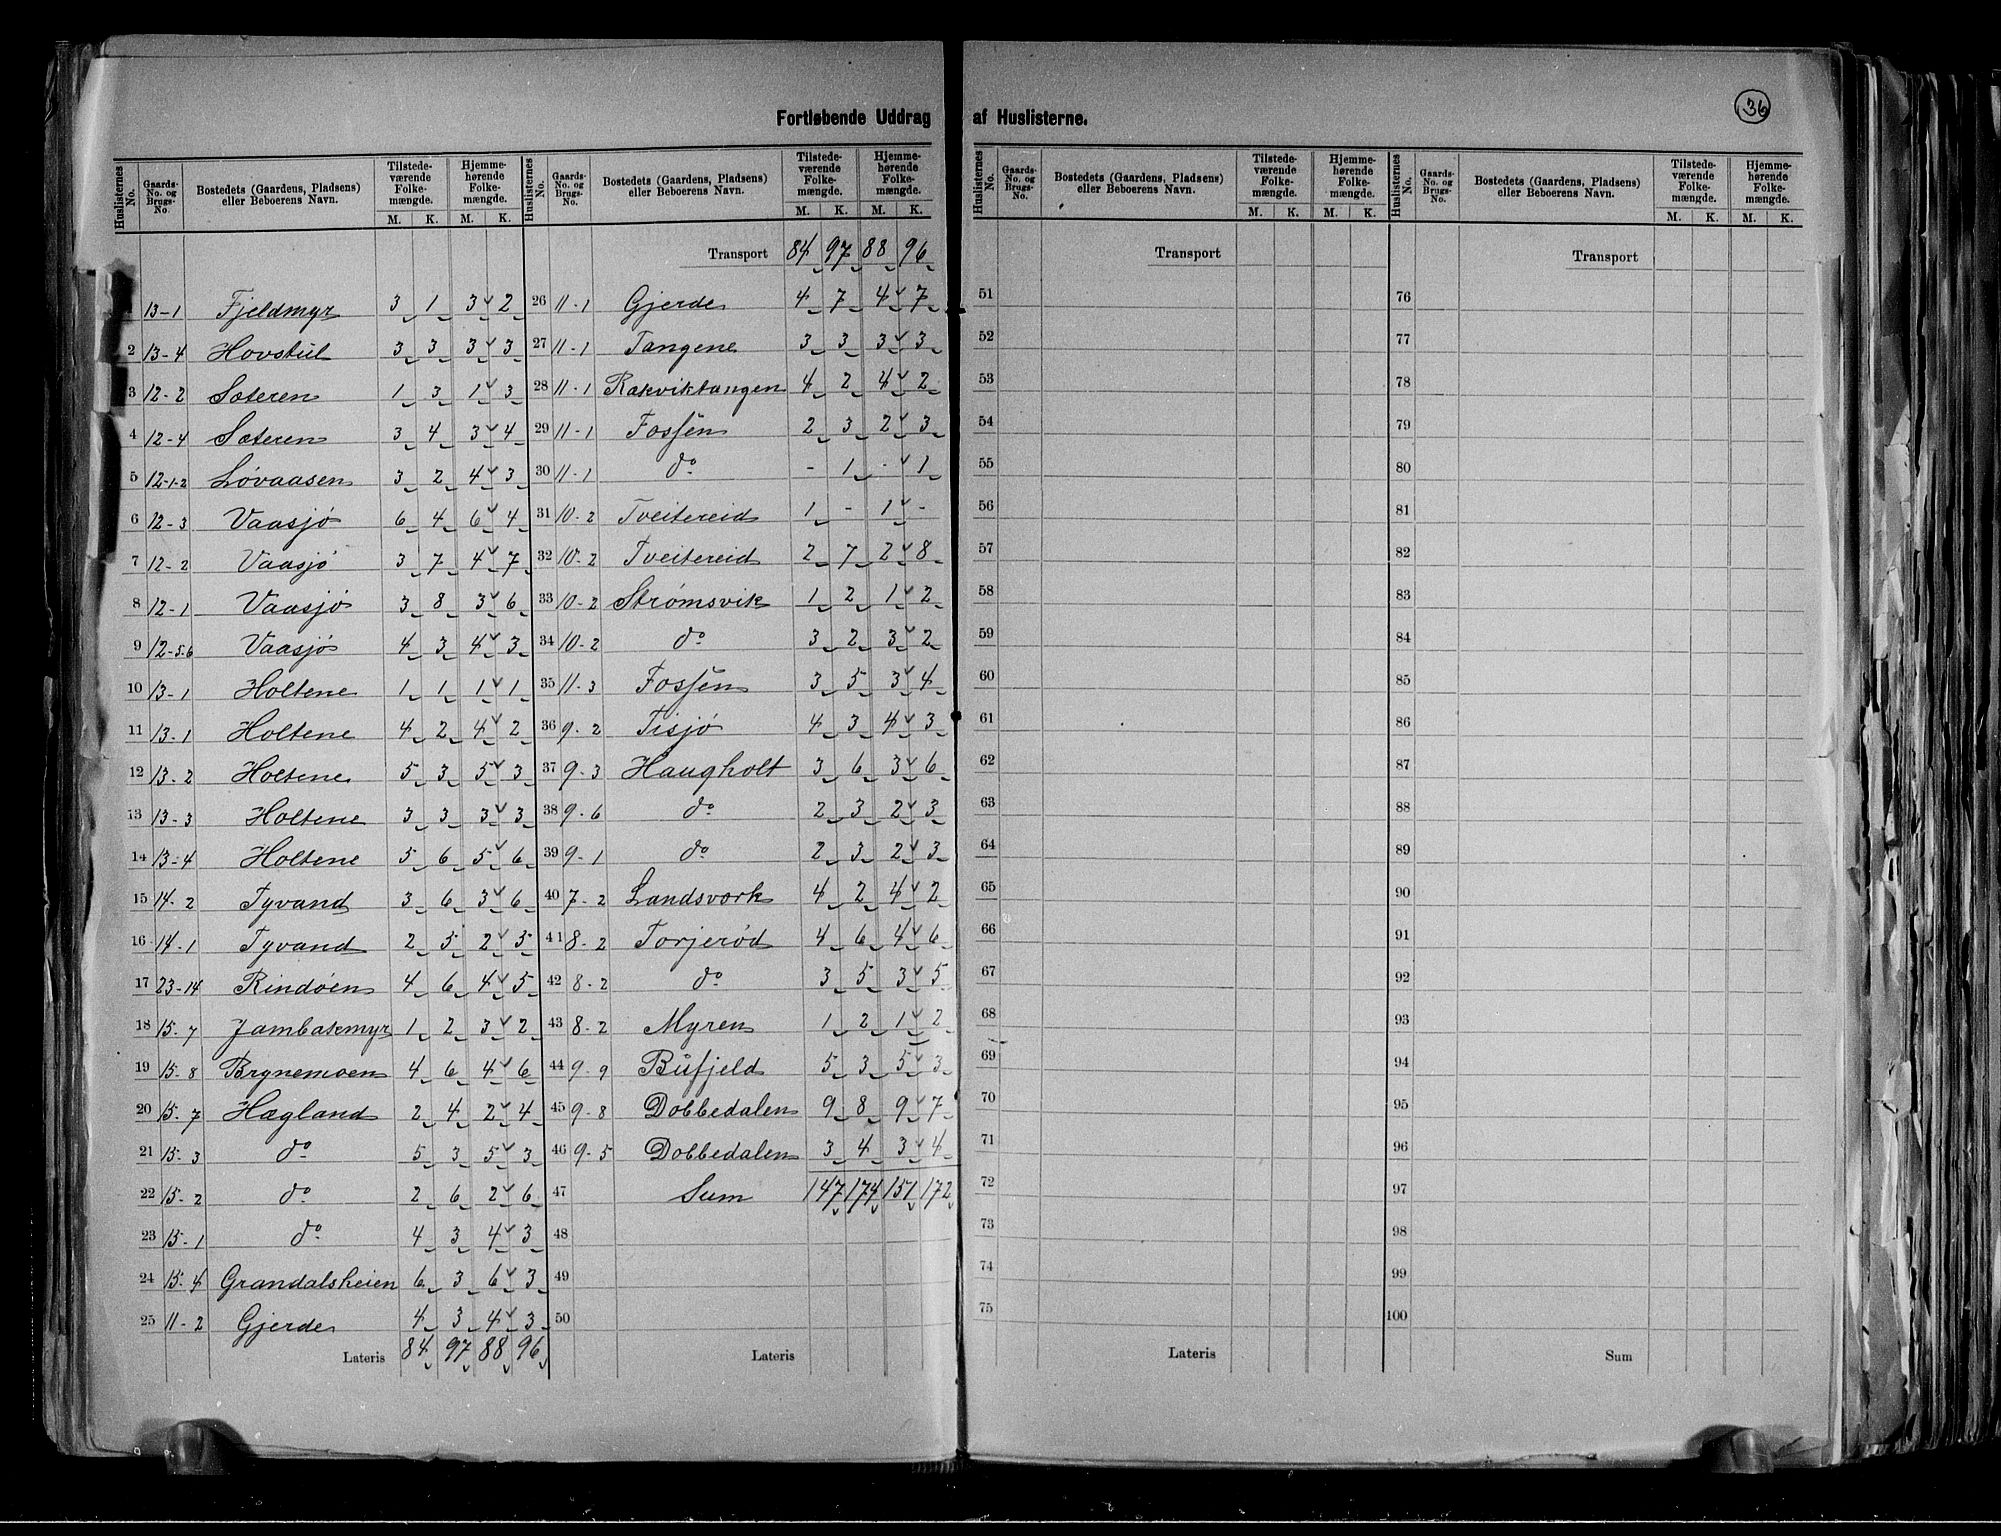 36
Fortløbende Uddrag af Huslisterne.
Huslisternes No. | Gaards-No. og Brugs-No. | Bostedets (Gaardens, Pladsens) eller Beboerens Navn. | Tilstede-værende Folke-mængde. M. K. | Hjemme-hørende Folke-mængde. M. K.
13-1 Fjeldmyr 3 1 3 2
2 13-4 Hovstul 3 3 3 3
3 12-2 Sæteren 1 3 1 3
4 12-4 Sæteren 3 4 3 4
5 12-1-2 Løvaasen 3 2 4 3
6 12-3 Vaasjø 6 4 6 4
7 12-2 Vaasjø 3 7 4 7
8 12-1 Vaasjø 3 8 3 6
9 12-5-6 Vaasjø 4 3 4 3
10 13-1 Holtene 1 1 1 1
11 13-1 Holtene 4 2 4 2
12 13-2 Holtene 5 3 5 3
13 13-3 Holtene 3 3 3 3
14 13-4 Holtene 5 6 5 6
15 14-2 Tyvand 3 6 3 6
16 14-1 Tyvand 2 5 2 5
17 23-14 Rindøen 4 6 4 5
18 15-7 Jambakmyr 1 2 3 2
19 15-8 Brynemoen 4 6 4 6
20 15-7 Hægland 2 4 2 4
21 15-3 do 5 3 5 3
22 15-2 do 2 6 2 6
23 15-1 do 4 3 4 3
24 15-4 Grandalsheien 6 3 6 3
25 11-2 Gjerde 4 3 4 3
Lateris 84 97 88 96
Huslisternes No. | Gaards-No. og Brugs-No. | Bostedets (Gaardens, Pladsens) eller Beboerens Navn. | Tilstede-værende Folke-mængde. M. K. | Hjemme-hørende Folke-mængde. M. K.
Transport 84 97 88 96
26 11-1 Gjerde 4 7 4 7
27 11-1 Tangene 3 3 3 3
28 11-1 Rakviktangen 4 2 4 2
29 11-1 Fossen 2 3 2 3
30 11-1 do - 1 - 1
31 10-2 Tveitereid 1 - 1 -
32 10-2 Tveitereid 2 7 2 8
33 10-2 Strømsvik 1 2 1 2
34 10-2 do 3 2 3 2
35 11-3 Fossen 3 5 3 4
36 9-2 Tisjø 4 3 4 3
37 9-3 Haugholt 3 6 3 6
38 9-6 do 2 3 2 3
39 9-1 do 2 3 2 3
40 7-2 Landsværk 4 2 4 2
41 8-2 Torjerød 4 6 4 6
42 8-2 do 3 5 3 5
43 8-2 Myren 1 2 1 2
44 9-9 Bufjeld 5 3 5 3
45 9-8 Dobbedalen 9 8 9 7
46 9-5 Dobbedalen 3 4 3 4
47 Sum 147 174 151 172
48
49
50
Lateris
Huslisternes No. | Gaards-No. og Brugs-No. | Bostedets (Gaardens, Pladsens) eller Beboerens Navn. | Tilstede-værende Folke-mængde. M. K. | Hjemme-hørende Folke-mængde. M. K.
Transport
51
52
53
54
55
56
57
58
59
60
61
62
63
64
65
66
67
68
69
70
71
72
73
74
75
Lateris
Huslisternes No. | Gaards-No. og Brugs-No. | Bostedets (Gaardens, Pladsens) eller Beboerens Navn. | Tilstede-værende Folke-mængde. M. K. | Hjemme-hørende Folke-mængde. M. K.
Transport
76
77
78
79
80
81
82
83
84
85
86
87
88
89
90
91
92
93
94
95
96
97
98
99
100
Sum